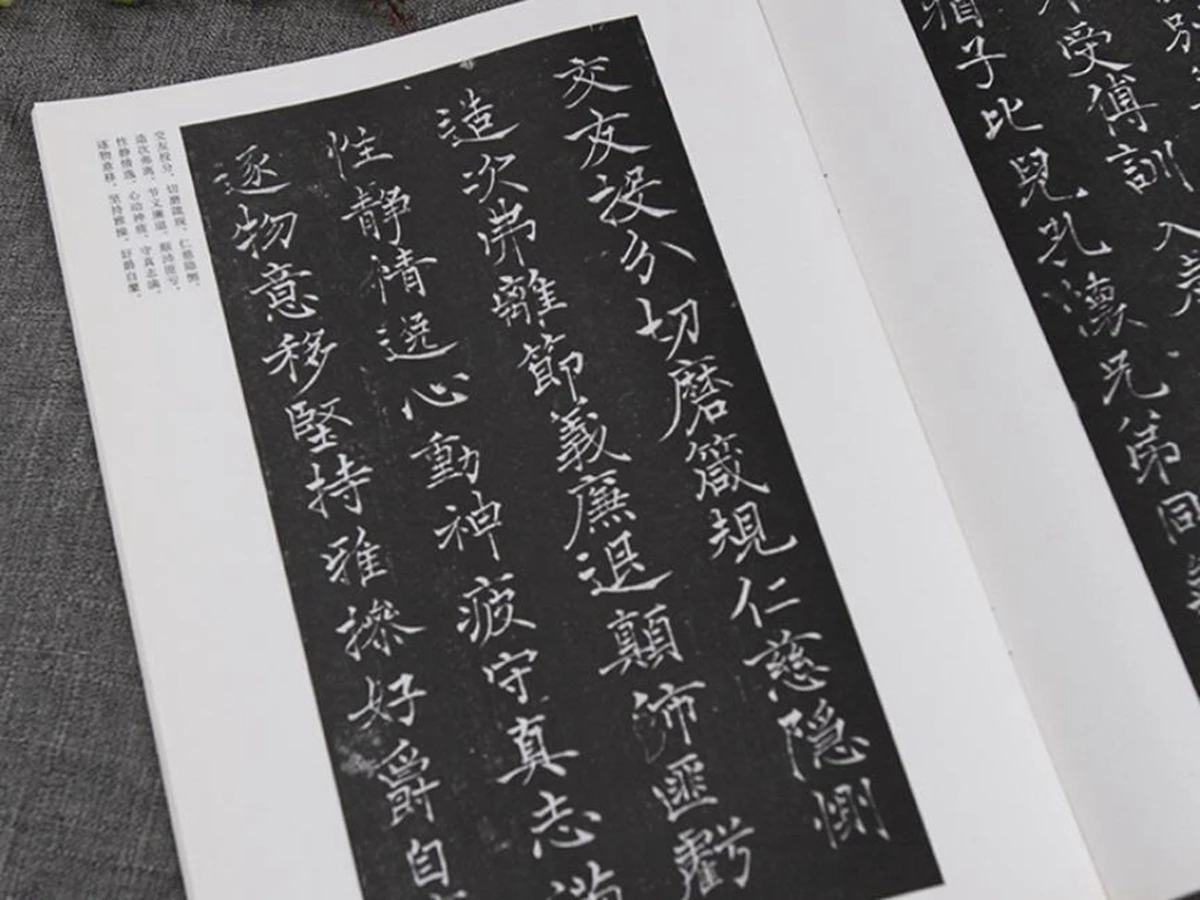 別
受傅訓入奉
猶子比兒孔懷兄弟同氣
交友投分切磨箴規仁慈隱惻
造次弗離節義廉退顛沛匪虧
性靜情逸心動神疲守真志滿
逐物意移堅持雅操好爵自
交友投分，切磨箴规。仁慈隐恻，
造次弗离。节义廉退，颠沛匪亏。
性静情逸，心动神疲。守真志满，
逐物意移。坚持雅操，好爵自縻。